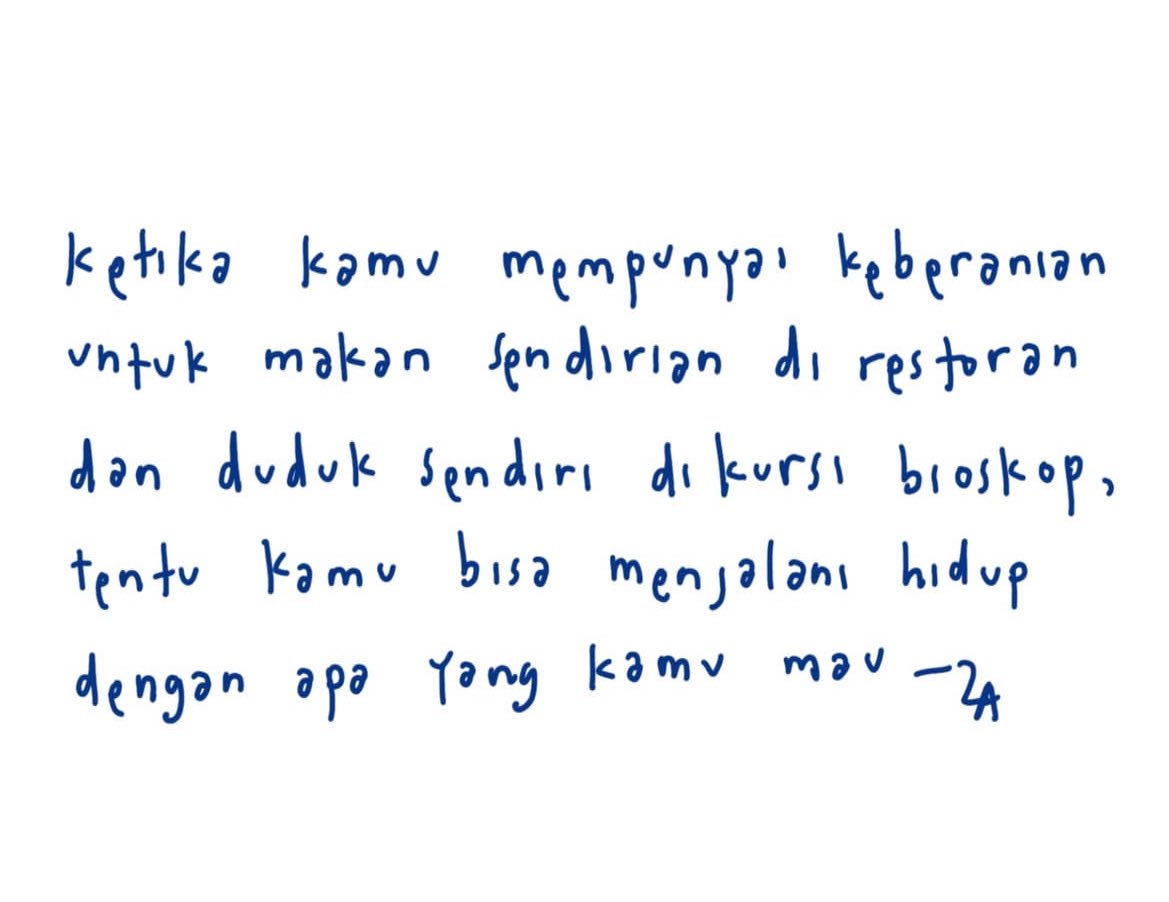 ketika kamu mempunyai keberanian
untuk makan sendirian di restoran
dan duduk sendiri di kursi bioskop,
tentu kamu bisa menjalani hidup
dengan apa yang kamu mau -ZA